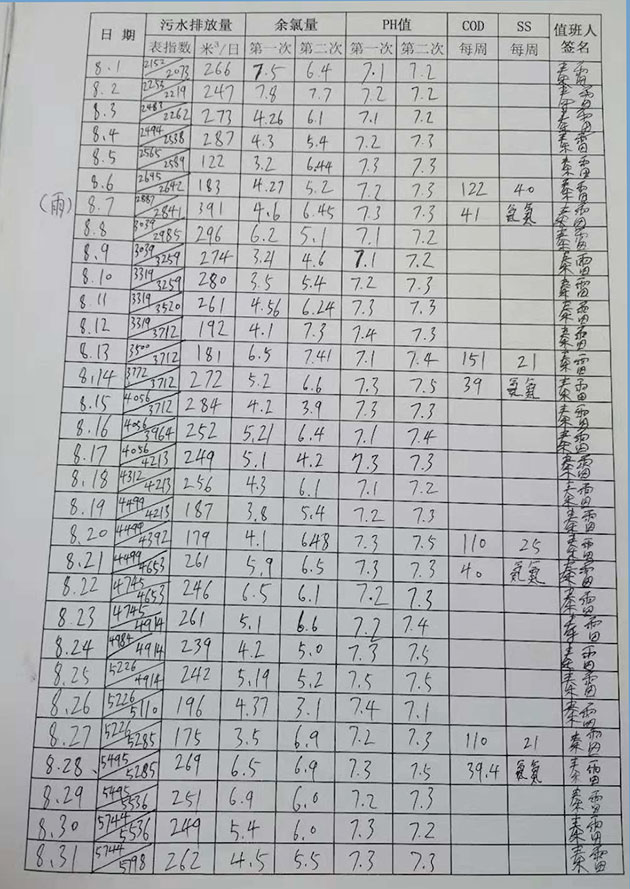 日 期 污水排放量 余氯量 PH值 COD SS 值班人
表指数 米³/日 第一次 第二次 第一次 第二次 每周 每周 签名
8.1 2152/2073 266 7.5 6.4 7.1 7.2 秦雷
8.2 2256/2219 247 7.8 7.7 7.2 7.2 秦雷
8.3 2483/2262 273 4.26 6.1 7.1 7.2 秦雷
8.4 2494/2538 287 4.3 5.4 7.2 7.3 秦雷
8.5 2565/2589 122 3.2 6.44 7.3 7.3 秦雷
8.6 2695/2642 183 4.27 5.2 7.2 7.3 122 40 秦雷
(雨) 8.7 2887/2841 391 4.6 6.45 7.3 7.3 41 氨氮 秦雷
8.8 3039/2985 296 6.2 5.1 7.1 7.2 秦雷
8.9 3039/3259 274 3.4 4.6 7.1 7.2 秦雷
8.10 3319/3259 280 3.5 5.4 7.2 7.3 秦雷
8.11 3319/3520 261 4.56 6.24 7.3 7.3 秦雷
8.12 3319/3712 192 4.1 7.3 7.4 7.3 秦雷
8.13 3500/3712 181 6.5 7.41 7.1 7.4 151 21 秦雷
8.14 3772/3712 272 5.2 6.6 7.3 7.5 39 氨氮 秦雷
8.15 4056/3712 284 4.2 3.9 7.3 7.3 秦雷
8.16 4056/3964 252 5.21 6.4 7.1 7.4 秦雷
8.17 4056/4213 249 5.1 4.2 7.3 7.3 秦雷
8.18 4312/4213 256 4.3 6.1 7.1 7.2 秦雷
8.19 4499/4213 187 3.8 5.4 7.2 7.3 秦雷
8.20 4499/4392 179 4.1 6.48 7.3 7.5 110 25 秦雷
8.21 4499/4653 261 5.9 6.5 7.3 7.3 40 氨氮 秦雷
8.22 4745/4653 246 6.5 6.1 7.2 7.3 秦雷
8.23 4745/4914 261 5.1 6.6 7.2 7.4 秦雷
8.24 4984/4914 239 4.2 5.0 7.3 7.5 秦雷
8.25 5226/4914 242 5.19 5.2 7.5 7.5 秦雷
8.26 5226/5110 196 4.37 3.1 7.4 7.1 秦雷
8.27 5226/5285 175 3.5 6.9 7.2 7.3 110 21 秦雷
8.28 5495/5285 269 6.5 6.9 7.3 7.5 39.4 氨氮 秦雷
8.29 5495/5536 251 6.9 6.0 7.2 7.3 秦雷
8.30 5744/5536 249 5.4 6.0 7.3 7.2 秦雷
8.31 5744/5798 262 4.5 5.5 7.3 7.3 秦雷